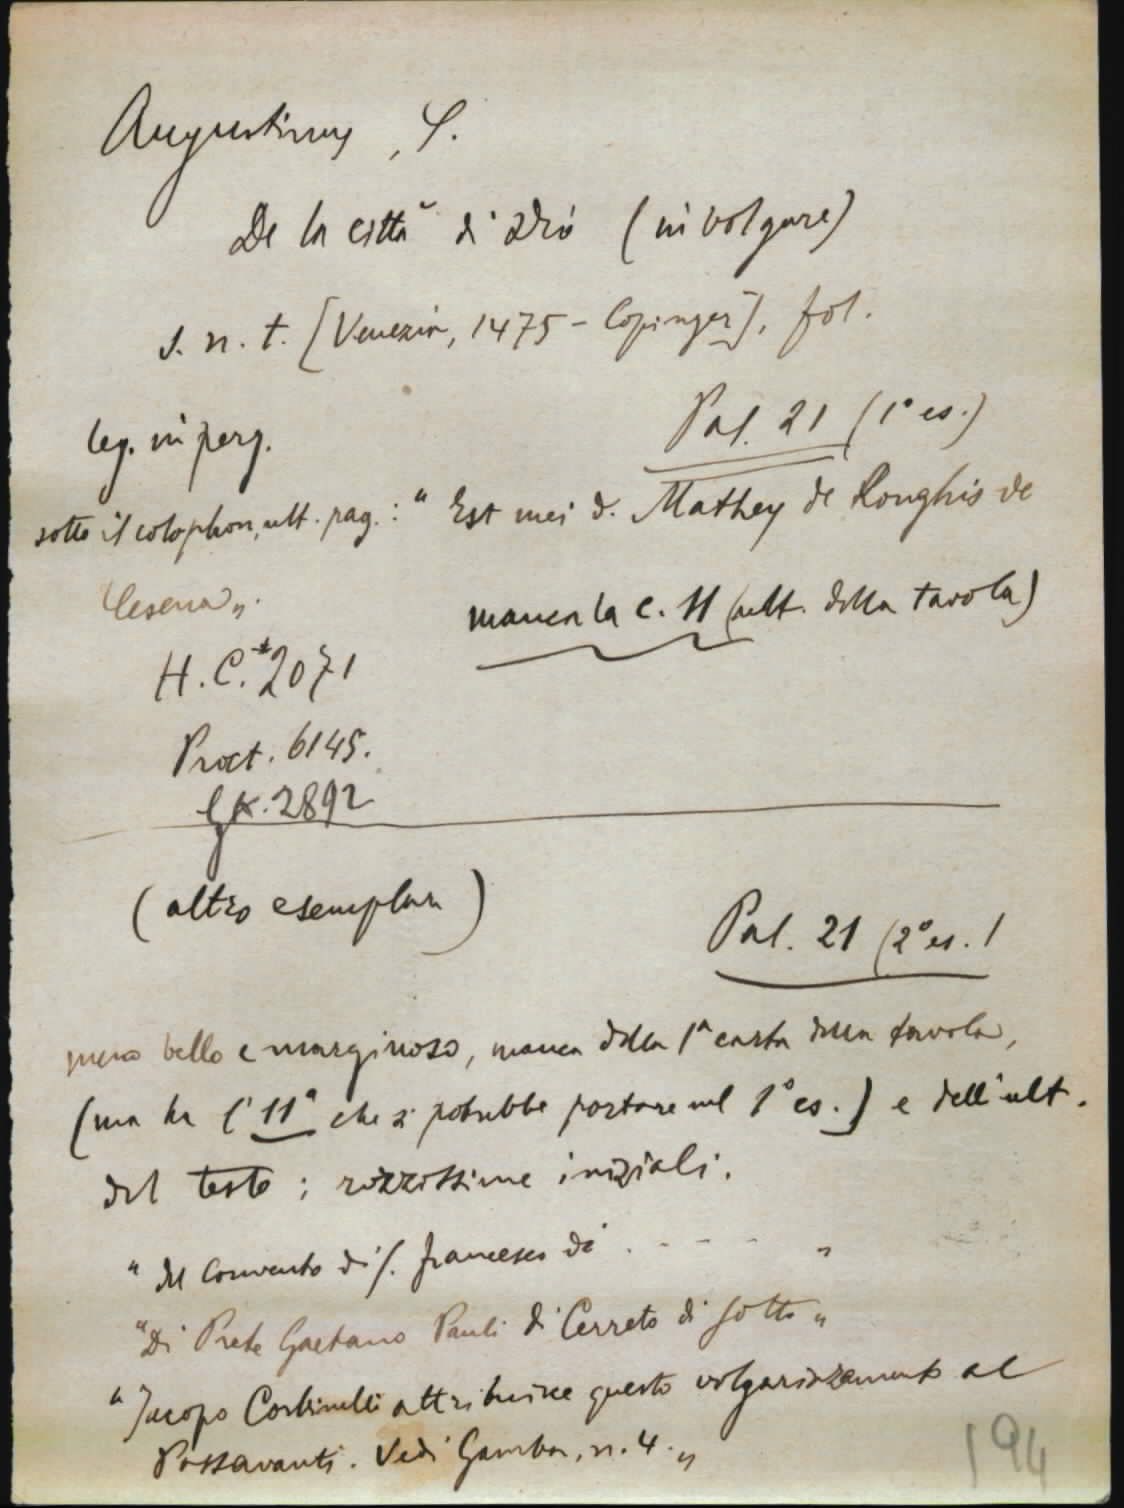 Augustinus, S.
De la città di Dio (in volgare)
s. n. t. [Venezia, 1475 - Copinger], fol.
Pal. 21 (1° es.)
leg. in perg.
sotto il colophon, ult. pag.: “ Est mei d. Mathey de Ronghis de
Cesena „.
manca la c. 11 (ult. della tavola)
H.C.*2071
Proct. 6145.
GK. 2892
(altro esemplare)
Pal. 21 (2° es.)
meno bello e marginoso, manca della 1ª carta della tavola,
(ma ha l'11° che si potrebbe portare nel 1° es.) e dell'ult.
del testo; rozzissime iniziali.
“ del Convento di S. Francesco di . - - - - „
“ Di Prete Gaetano Pauli di Cerreto di sotto „
“ Jacopo Corbinelli attribuisce questo volgarizzamento al
Passavanti. Vedi Gamba, n. 4. „
194